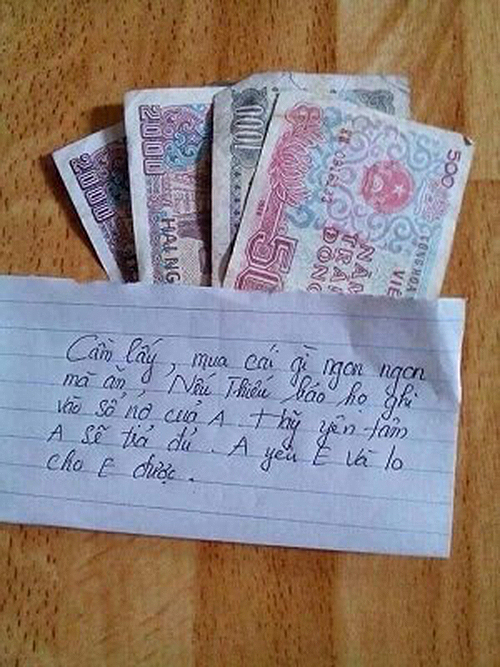 2000
2000
HAI NG
1000
500
50
NĂM
TRĂ
ĐỒNG
VIỆ
CỘNG HOÀ
Cầm lấy, mua cái gì ngon ngon
mà ăn. Nếu Thiếu báo họ ghi
vào sổ nợ của A. Hãy yên tâm
A sẽ trả đủ. A yêu E và lo
cho E được.